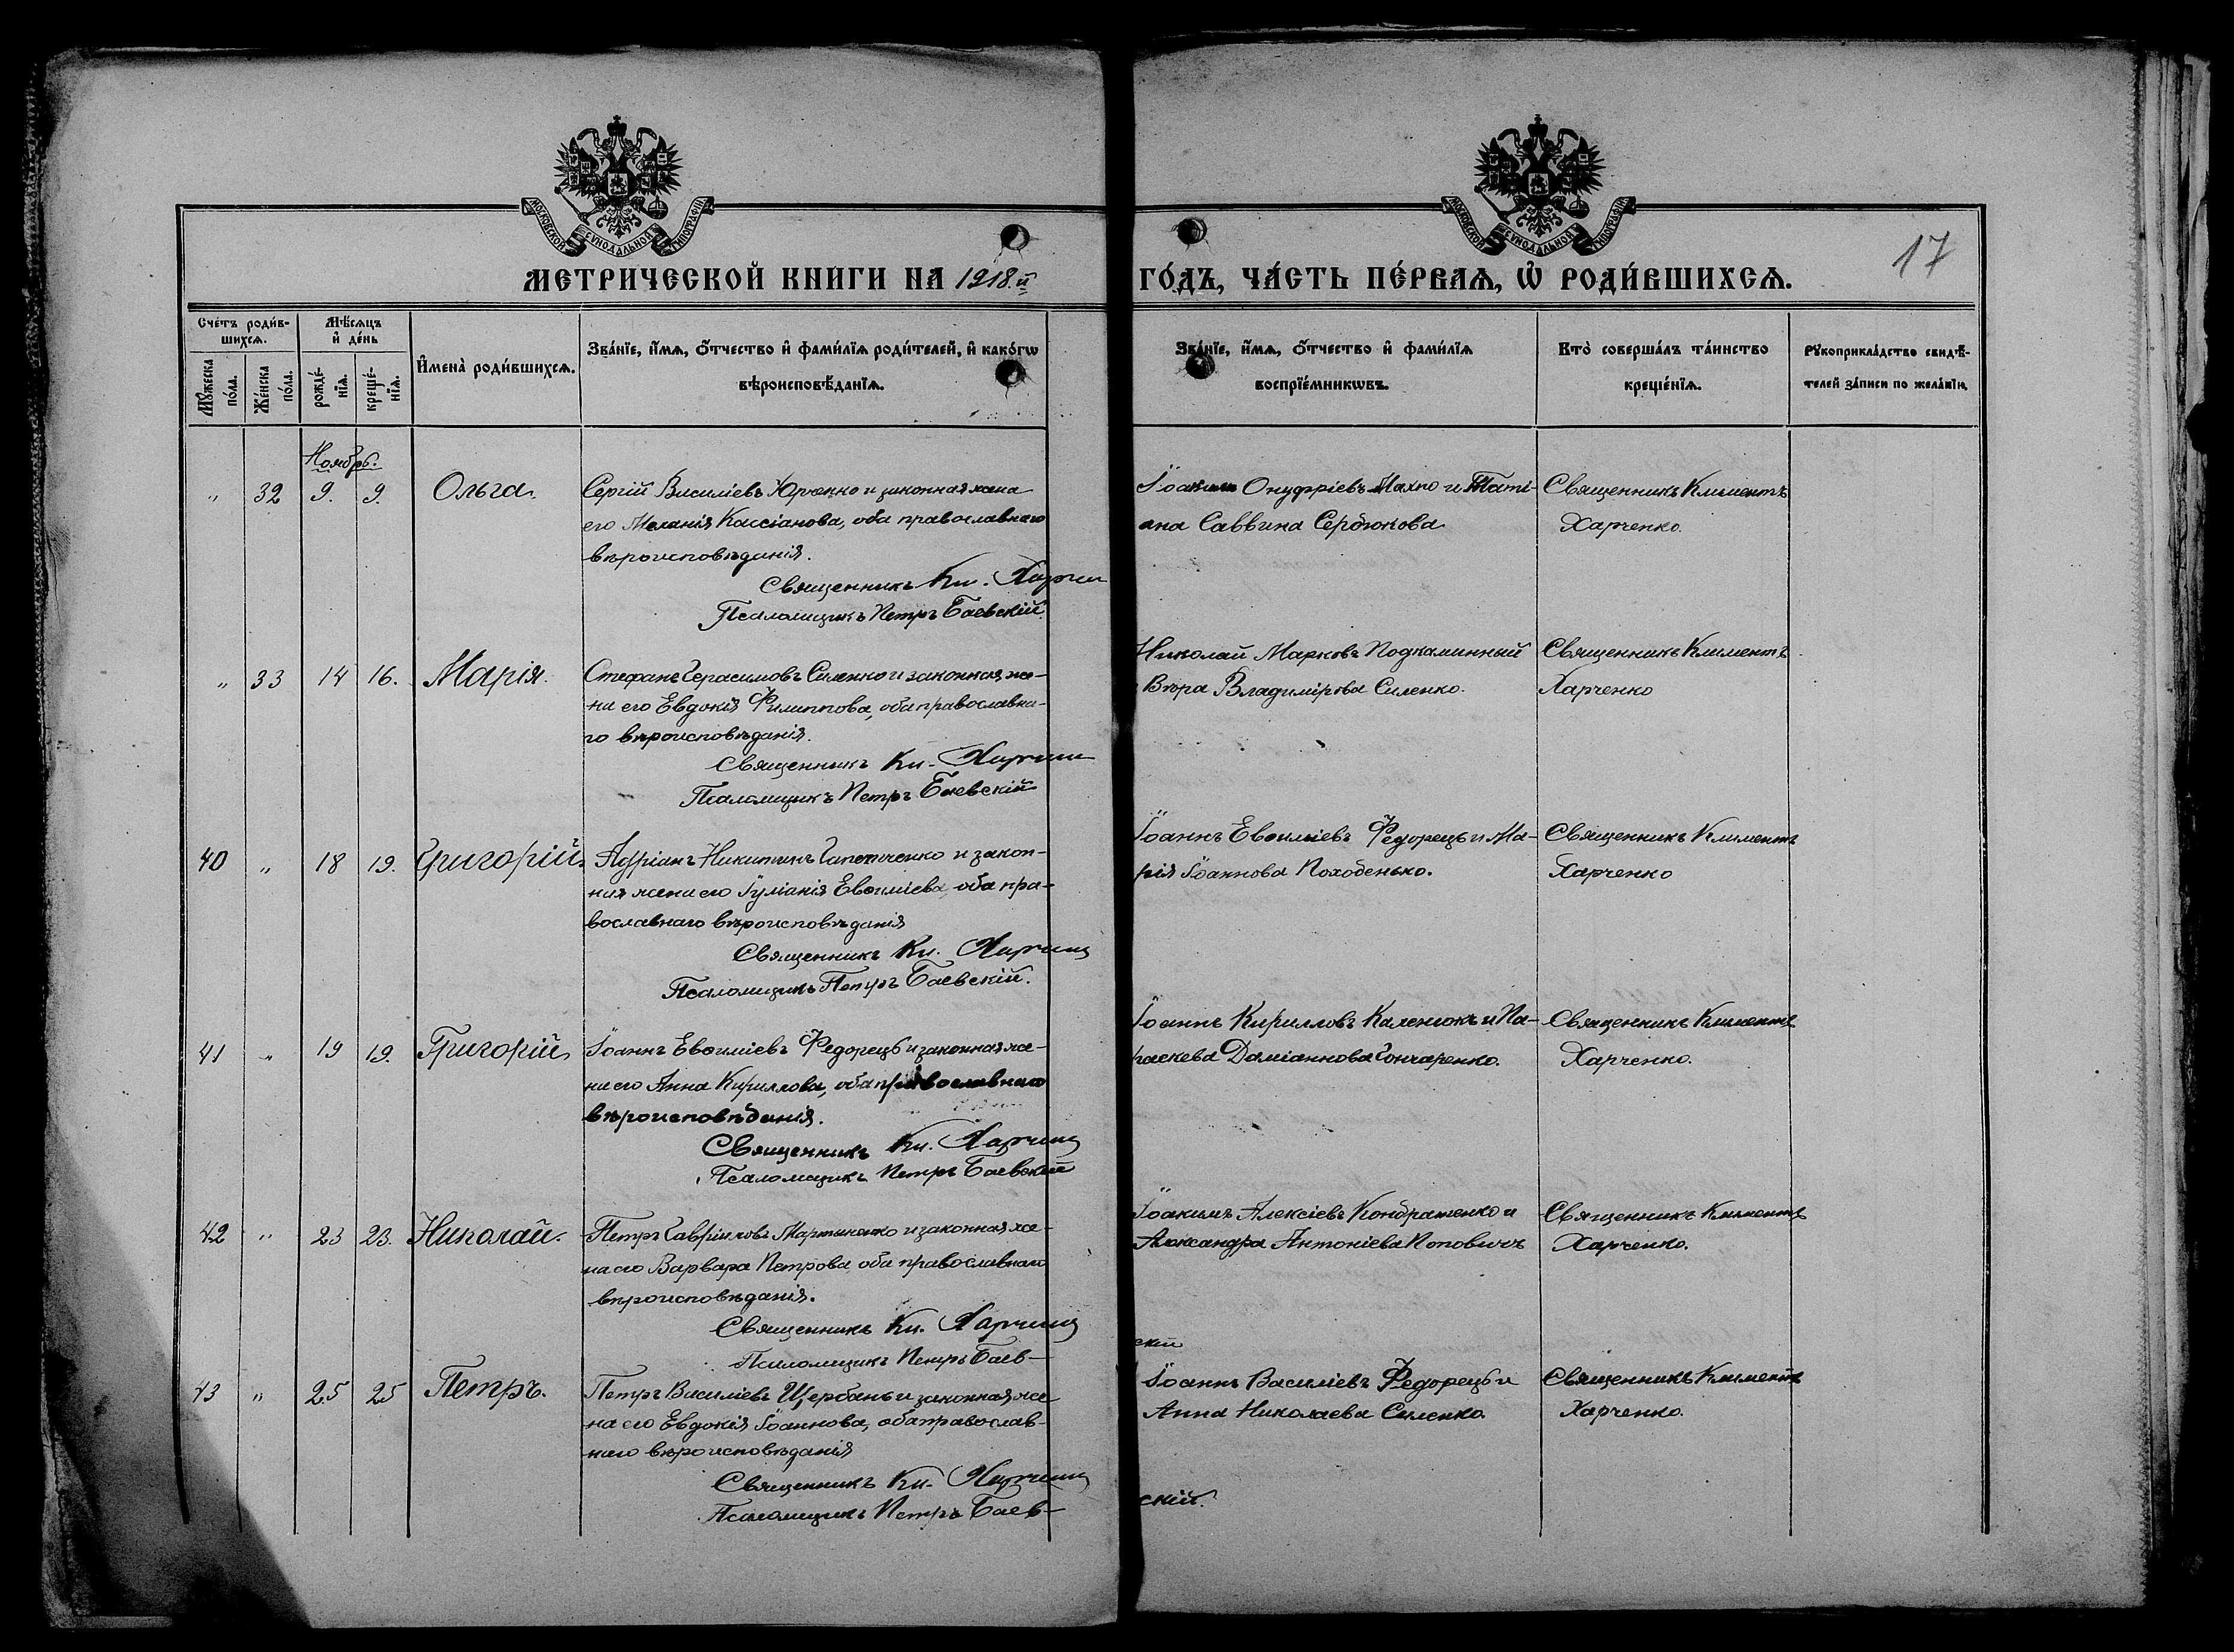 МОСКОВСКОЙ СѴНОДАЛЬНОЙ ТИПОГРАФІИ
МОСКОВСКОЙ СѴНОДАЛЬНОЙ ТИПОГРАФІИ
17
МЕТРИЧЕСКОЙ КНИГИ НА 1918.й ГО́ДЪ, ЧА́СТЬ ПЕ́РВАѦ, Ѡ҆ РОДИ́ВШИХСѦ.
Сче́тъ роди́в-
шихсѧ.
Мꙋ́жеска по́ла.
Же́нска по́ла.
Мѣ́сѧцъ
и҆ де́нь
рожде́-
нїѧ.
креще́-
нїѧ.
И҆мена̀ роди́вшихсѧ.
Зва́нїе, и҆́мѧ, ѻ҆́тчество и҆ фами́лїѧ роди́телей, и҆ како́гѡ
вѣроисповѣ́данїѧ.
Зва́нїе, и҆́мѧ, ѻ҆́тчество и҆ фами́лїѧ
воспрїе́мникѡвъ.
Кто̀ соверша́лъ та́инство
креще́нїѧ.
Рꙋкоприкла́дство свидѣ́-
телей за́писи по жела́нїю.
Ноябрь.
" 32 9. 9. Ольга.
Сергій Василіевъ Юрченко и законная жена
его Меланія Кассіанова, оба православнаго
вѣроисповѣданія.
Священникъ Кл.
Псаломщикъ Петръ Баевскій.
Онуфріевъ Махно и Таті-
ана Саввина Сербюкова
Священникъ Климентъ
Харченко.
" 33 14 16. Марія.
Стефанъ Герасимовъ Силенко и законная же-
на его Евдокія Филиппова, оба православна-
го вѣроисповѣданія.
Священникъ Кл.
Псаломщикъ Петръ Баевскій
Николай Марковъ Подкаминный
Вѣра Владимірова Силенко.
Священникъ Климентъ
Харченко
40 " 18 19. Григорій.
Адріанъ Никитинъ и закон-
ная жена его Іуліанія Евѳиміева, оба пра-
вославнаго вѣроисповѣданія
Священникъ Кл.
Псаломщикъ Петръ Баевскій.
Іоаннъ Евѳиміевъ Федорецъ и Ма-
рія Іоаннова Походенько.
Священникъ Климентъ
Харченко
41 " 19 19. Григорій
Іоаннъ Евѳиміевъ Федорецъ и законная же-
на его Анна Кириллова, оба православнаго
вѣроисповѣданія.
Священникъ Кл.
Псаломщикъ Петръ Баевскій
Іоаннъ Кирилловъ Каленюкъ и Па-
раскева Даміаннова Гончаренко.
Священникъ Климентъ
Харченко.
42 " 23 23. Николай.
Петръ Гавріиловъ Мартыненко и законная же-
на его Варвара Петрова, оба православнаго
вѣроисповѣданія.
Священникъ Кл.
Псаломщикъ Петръ Баев-
скій
Іоакимъ Алексіевъ Кондратенко и
Александра Антоніева Поповичъ
Священникъ Климентъ
Харченко.
43 " 25 25 Петръ.
Петръ Василіевъ Щербань и законная же
на его Евдокія Іоаннова, оба православ-
наго вѣроисповѣданія
Священникъ Кл.
Псаломщикъ Петръ Баев-
скій.
Іоаннъ Василіевъ Федорецъ и
Анна Николаева Силенко.
Священникъ Климентъ
Харченко.